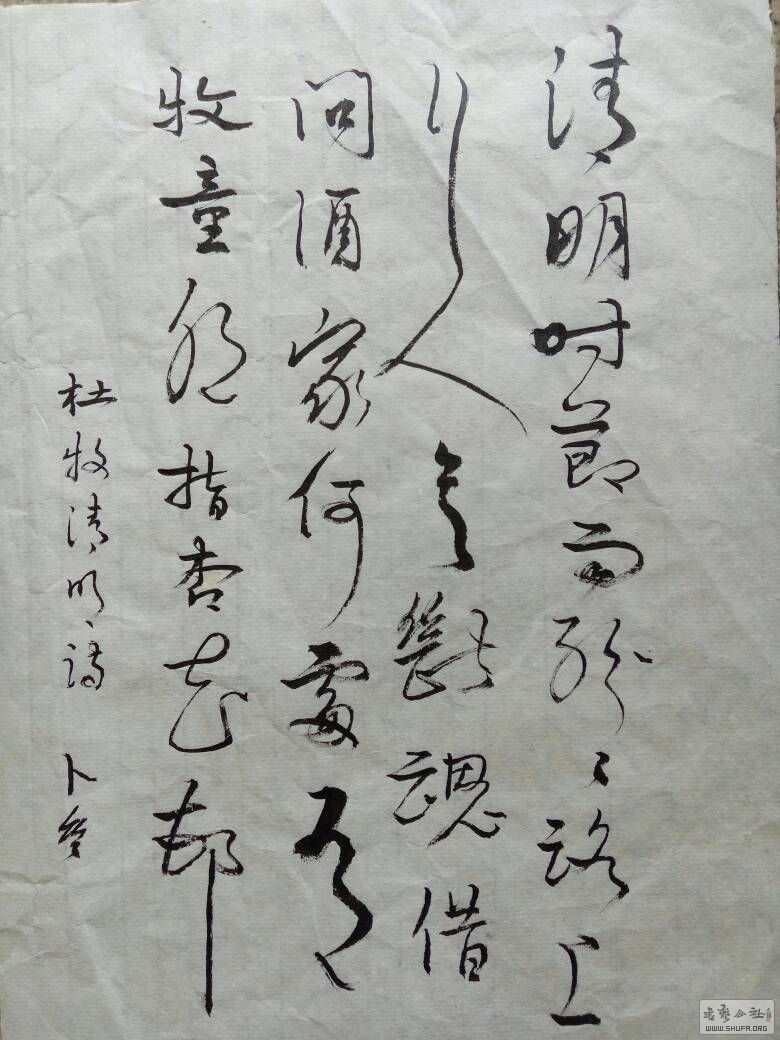 清明时节雨纷〻路上
行人欲断魂借
问酒家何處有
牧童遥指杏花邨
杜牧清明诗 卜
书艺公社
WWW.SHUFA.ORG